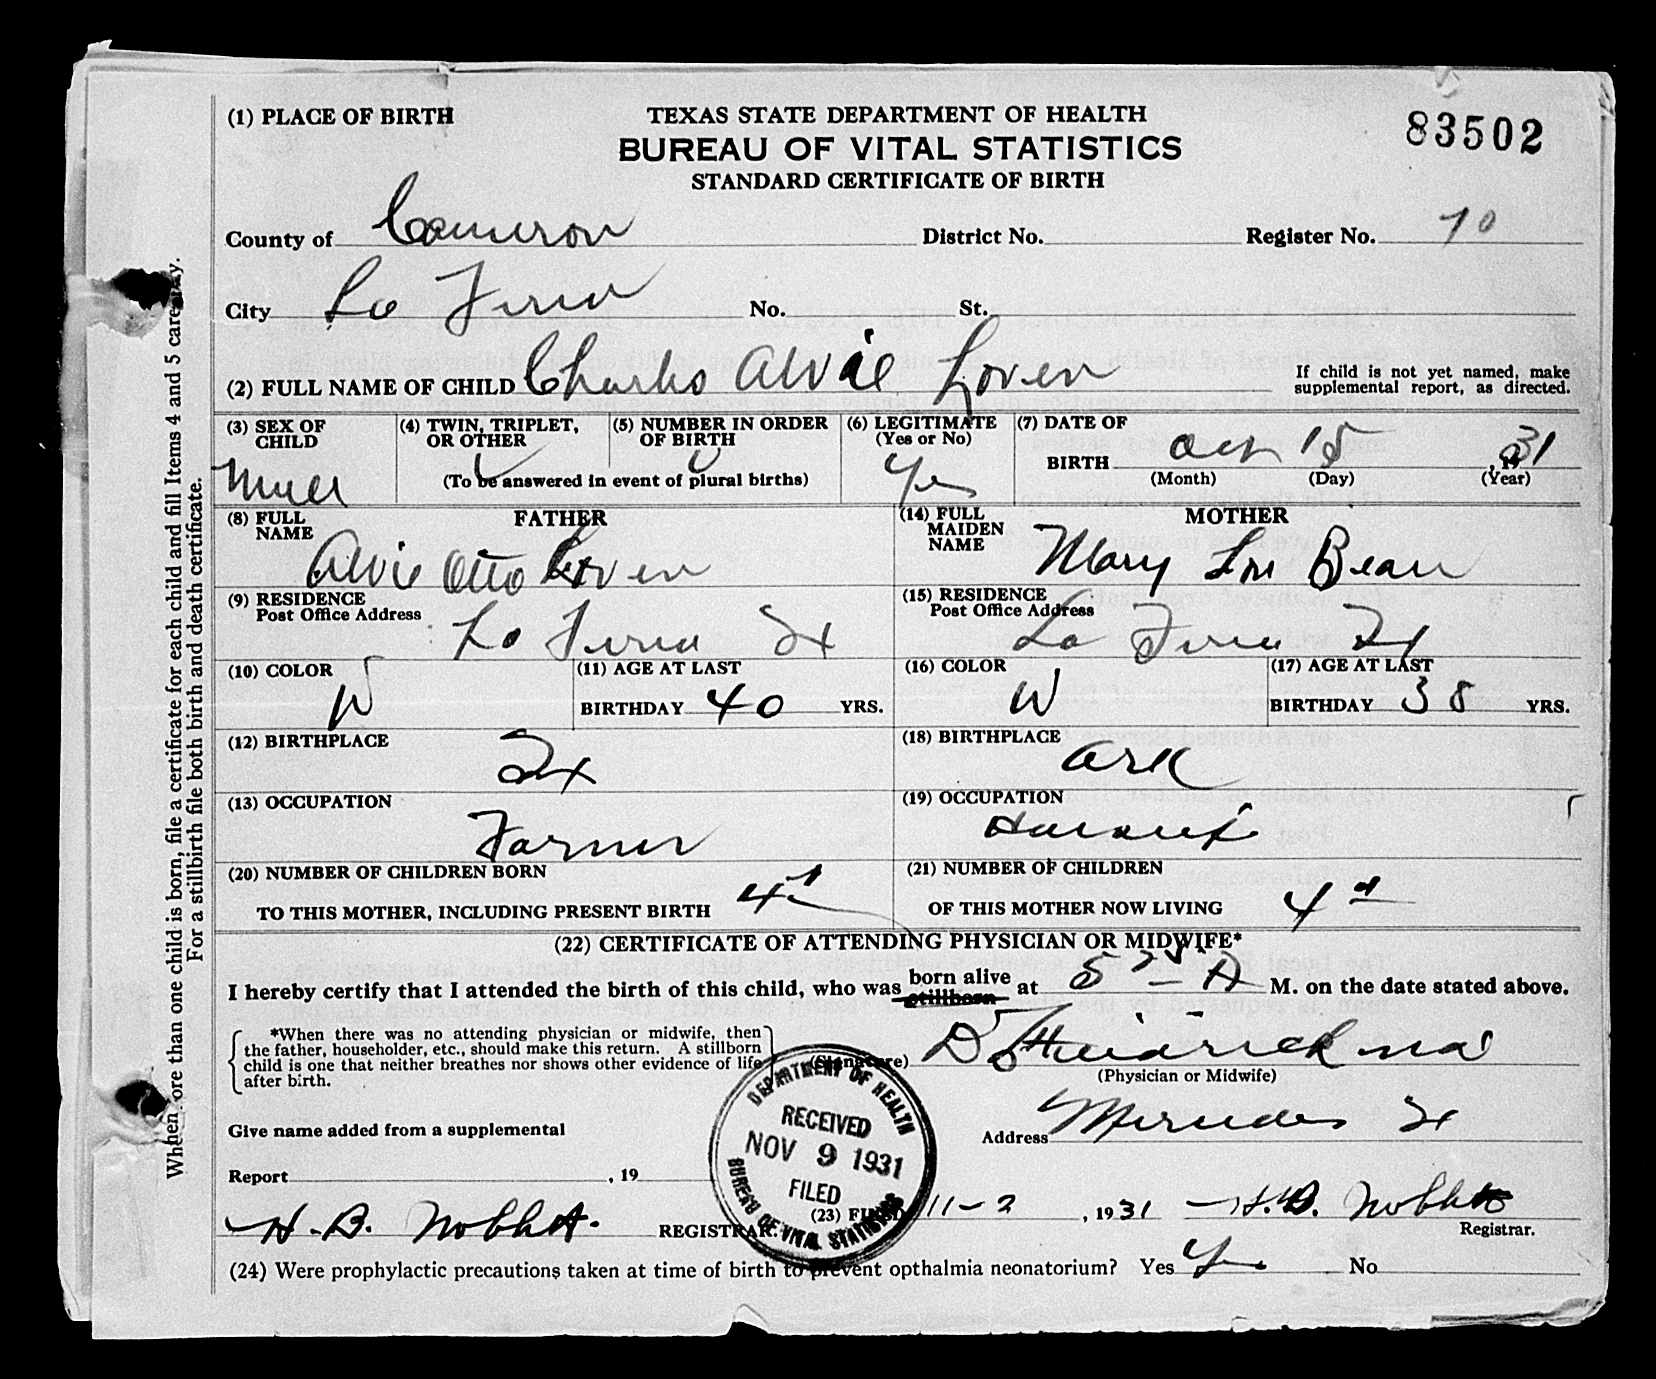 (1) PLACE OF BIRTH
TEXAS STATE DEPARTMENT OF HEALTH
BUREAU OF VITAL STATISTICS
STANDARD CERTIFICATE OF BIRTH
83502
County of Cameron District No. Register No. 70
City La Feria No. St.
(2) FULL NAME OF CHILD Charles Alvie Loven
If child is not yet named, make
supplemental report, as directed.
(3) SEX OF
CHILD
(4) TWIN, TRIPLET,
OR OTHER
(5) NUMBER IN ORDER
OF BIRTH
(To be answered in event of plural births)
(6) LEGITIMATE
(Yes or No)
Yes
(7) DATE OF
BIRTH Oct 15 31
(Month) (Day) (Year)
FATHER
(8) FULL
NAME
Alvie Otto Loven
MOTHER
(14) FULL
MAIDEN
NAME
Mary Lou Bean
(9) RESIDENCE
Post Office Address
La Feria Tx
(15) RESIDENCE
Post Office Address
La Feria Tx
(10) COLOR
W
(11) AGE AT LAST
BIRTHDAY 40 YRS.
(16) COLOR
W
(17) AGE AT LAST
BIRTHDAY 38 YRS.
(12) BIRTHPLACE
Tx
(18) BIRTHPLACE
Ark
(13) OCCUPATION
Farmer
(19) OCCUPATION
(20) NUMBER OF CHILDREN BORN
TO THIS MOTHER, INCLUDING PRESENT BIRTH 4
(21) NUMBER OF CHILDREN
OF THIS MOTHER NOW LIVING 4
(22) CERTIFICATE OF ATTENDING PHYSICIAN OR MIDWIFE*
I hereby certify that I attended the birth of this child, who was born alive stillborn at 5 A M. on the date stated above.
*When there was no attending physician or midwife, then
the father, householder, etc., should make this return. A stillborn
child is one that neither breathes nor shows other evidence of life
after birth.
(Signature)
(Physician or Midwife)
Give name added from a supplemental
Address Mercedes Tx
Report , 19
H. B. REGISTRAR.
(23) FILED 11-2, 1931 H. B.
Registrar.
DEPARTMENT OF HEALTH
RECEIVED
NOV 9 1931
FILED
BUREAU OF VITAL STATISTICS
(24) Were prophylactic precautions taken at time of birth to prevent opthalmia neonatorium? Yes Yes No
When more than one child is born, file a certificate for each child and fill Items 4 and 5 carefully.
For a stillbirth file both birth and death certificate.